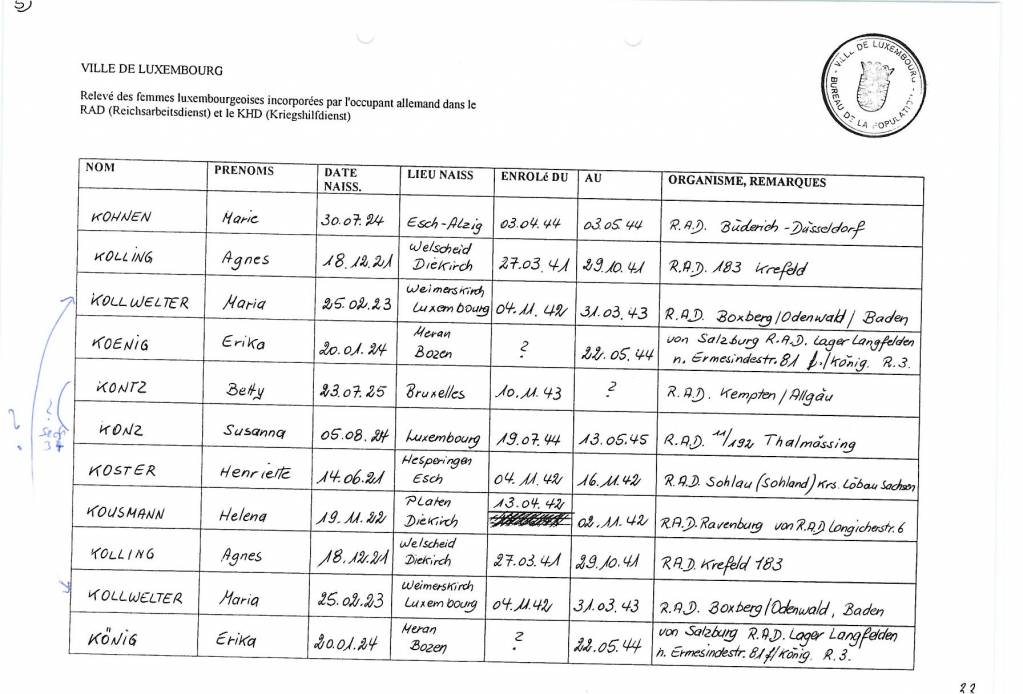 5)
VILLE DE LUXEMBOURG
BUREAU DE LA POPULATION
VILLE DE LUXEMBOURG
Relevé des femmes luxembourgeoises incorporées par l'occupant allemand dans le
RAD (Reichsarbeitsdienst) et le KHD (Kriegshilfdienst)
NOM PRENOMS DATE NAISS. LIEU NAISS ENROLé DU AU ORGANISME, REMARQUES
KOHNEN Marie 30.07.24 Esch-Alzig 03.04.44 03.05.44 R.A.D. Büderich-Düsseldorf
KOLLING Agnes 18.12.21 Welscheid Diekirch 27.03.41 29.10.41 R.A.D. 183 Krefeld
KOLLWELTER Maria 25.02.23 Weimerskirch Luxembourg 04.11.42 31.03.43 R.A.D. Boxberg/Odenwald/Baden
KOENIG Erika 20.01.24 Meran Bozen ? 22.05.44 von Salzburg R.A.D. Lager Langfelden
n. Ermesindestr. 81 /König. R.3.
KONTZ Betty 23.07.25 Bruxelles 10.11.43 ? R.A.D. Kempten/Allgäu
KONZ Susanna 05.08.24 Luxembourg 19.07.44 13.05.45 R.A.D. 11/192 Thalmässing
KOSTER Henriette 14.06.21 Hesperingen Esch 04.11.42 16.11.42 R.A.D. Sohlau (Sohland) Krs. Löbau Sachsen
KOUSMANN Helena 19.11.22 Platen Diekirch 13.04.42 02.11.42 R.A.D. Ravenburg von R.A.D Longicherstr. 6
KOLLING Agnes 18.12.21 Welscheid Diekirch 27.03.41 29.10.41 RAD. Krefeld 183
KOLLWELTER Maria 25.02.23 Weimerskirch Luxembourg 04.11.42 31.03.43 R.A.D. Boxberg/Odenwald, Baden
KÖNIG Erika 20.01.24 Meran Bozen ? 22.05.44 von Salzburg R.A.D. Lager Langfelden
n. Ermesindestr. 81 /König. R.3.
?
?
22